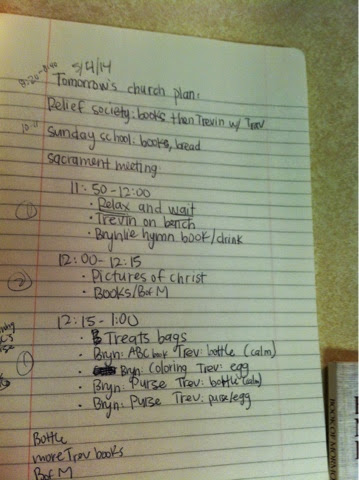 5/4/14
8:20-8:40
Tomorrow's church plan:
Relief society: books then Trevin w/ Trev
10-11
Sunday school: books, bread
sacrament meeting
11:50-12:00
· Relax and wait
1
· Trevin on bench
· Brynlie hymn book/drink
12:00-12:15
2
· Pictures of christ
· Books/BofM
12:15-1:00
· Treats bags
· Bryn: ABC book Trev: bottle (calm)
· Bryn: Coloring Trev: egg
· Bryn: Purse Trev: bottle (calm)
· Bryn: Purse Trev: purse/egg
Bottle
more Trev books
BofM
BOOK OF MORMON